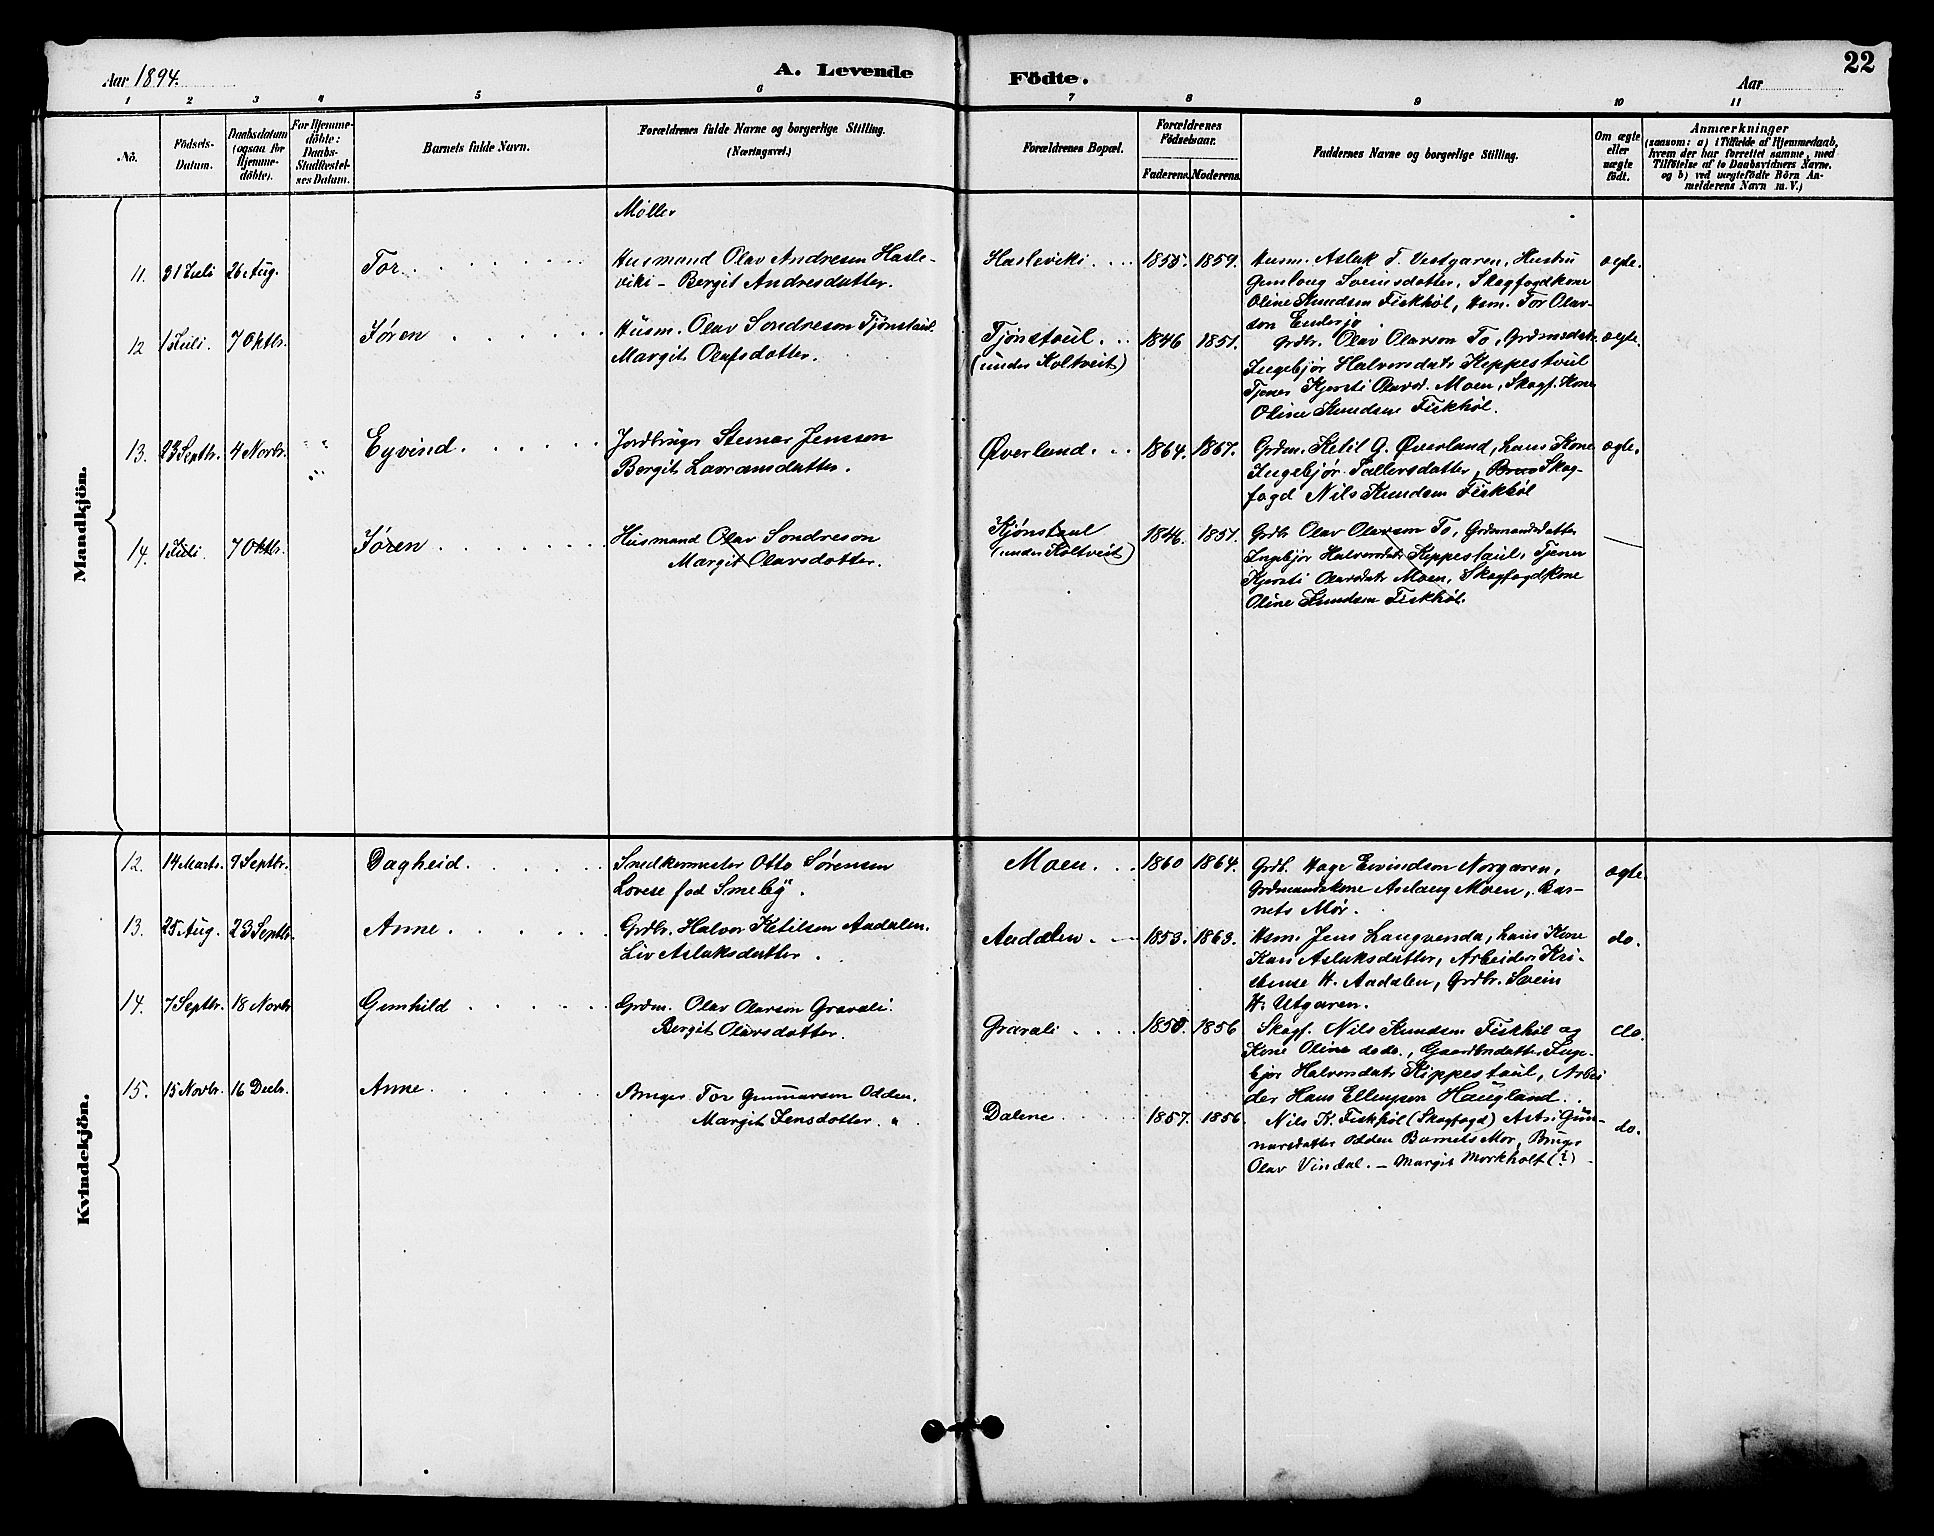 Aar 1894.
A. Levende Födte.
Aar
22
1 2 3 4 5 6 7 8 9 10 11
No.
Födsels-
Datum.
Daabsdatum
(ogsaa for
Hjemme-
döbte).
For Hjemme-
döbte:
Daabs-
Stadfæstel-
ses Datum.
Barnets fulde Navn.
Forældrenes fulde Navne og borgerlige Stilling.
(Næringsvei.)
Forældrenes Bopæl.
Forældrenes
Födselsaar.
Faderens. Moderens.
Faddernes Navne og borgerlige Stilling.
Om ægte
eller
uægte
födt.
Anmærkninger
(saasom: a) i Tilfælde af Hjemmedaab,
hvem der har forrettet samme, med
Tilföielse af to Daabsvidners Navne.
og b) ved uægtefödte Börn An-
melderens Navn m. V.)
Mandkjön.
Møller
11. 31 Juli 26 Aug. Tor
Husmand Olav Andresen Hasle-
viki - Bergit Andresdatter.
Hasleviki 1855. 1859.
Husm. Aslak T. Vestgaren, Hustru
Gunlaug Sveinsdatter, Skogfogdkone
Oline Knudsen Fiskhøl, Hsm. Tor Olav-
son Endesjo
ægte.
12 1 Juli. 7 Oktbr. Søren
Husm. Olav Sondreson Tjønstaul.
Margit Olafsdatter.
Tjønstaul.
(under Koltveit)
1846 1851.
Grdbr. Olav Olavson To, Grdmsdatr.
Ingebjør Halvorsdatr Keppestaul
Tjener Kjersti Olavsd. Moen, Skogf. Kone
Oline Knudsen Fiskhøl.
ægte.
13. 23 Septbr. 4 Novbr. " " " Eyvind.
Jordbruger Steinar Jensson
Bergit Lavransdatter.
Øverland. 1864. 1867.
Grdm. Ketil G. Øverland, hans Kone
Ingebjør Tallevsdatter, Brus Skog-
fogd Nils Knudsen Fiskhøl
ægte.
14. 1 Juli. 7 Oktbr. Søren
Husmand Olav Sondreson
Margit Olavsdotter.
Kjønstaul
(under Koltveit)
1846. 1851.
Grdbr Olav Olavson To, Grdmandsdatter
Ingebjør Halvorsdatr Keppestaul, Tjener
Kjersti Olavsdatr Moen, Skogfogdkone
Oline Knudsen Fiskhøl.
Kvindekjön.
12. 14 Marts. 9 Septbr. Dagheid.
Snedkermester Otto Sørensen
Lovise fød Smeby.
Moen. 1860 1864.
Grdb. Hage Eivindson Norgaren,
Grdmandskone Aslaug Moen, Bar-
nets Mor.
ægte.
13. 25 Aug. 23 Septbr. Anne
Grdbr. Halvor Ketilsen Aadalen.
Liv Aslaksdatter.
Aadalen. 1853. 1863.
Hsm. Jens Langvenda, hans Kone
Kari Aslaksdatter, Arbeider Kri-
stense H. Aadalen, Grdbr. Svein
H. Utgaren.
do.
14. 7 Septbr. 18 Novbr Gunhild
Grdm. Olav Olavson Gravali.
Bergit Olavsdotter.
Gravali 1850. 1856
Skogf. Nils Knudsen Fiskhøl og
Kone Oline dodo., Gaardmdatter Inge-
bjør Halvorsdatr Kippestaul, Arbei
der Hans Ellingson Haugland.
do.
15. 15 Novbr. 16 Decbr. Anne.
Bruger Tor Gunnarson Odden.
Margit Jensdotter. "
Dalene 1857. 1856
Nils K. Fiskhøl (Skogfogd) Astri Gun-
narsdatter Odden Barnets Mor, Bruger
Olav Vindal. - Margit Morkholt (?)
do.